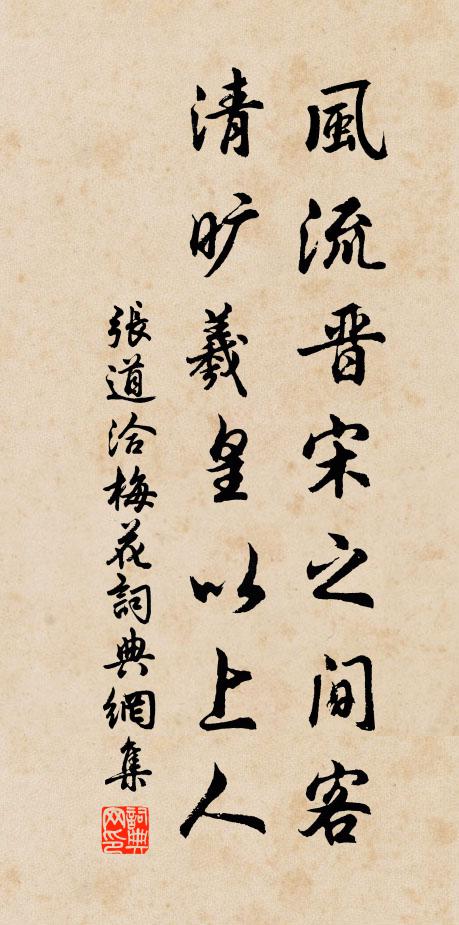 風流晋宋之间客
清旷羲皇以上人
張道洽梅花詞典網集
詞典網印